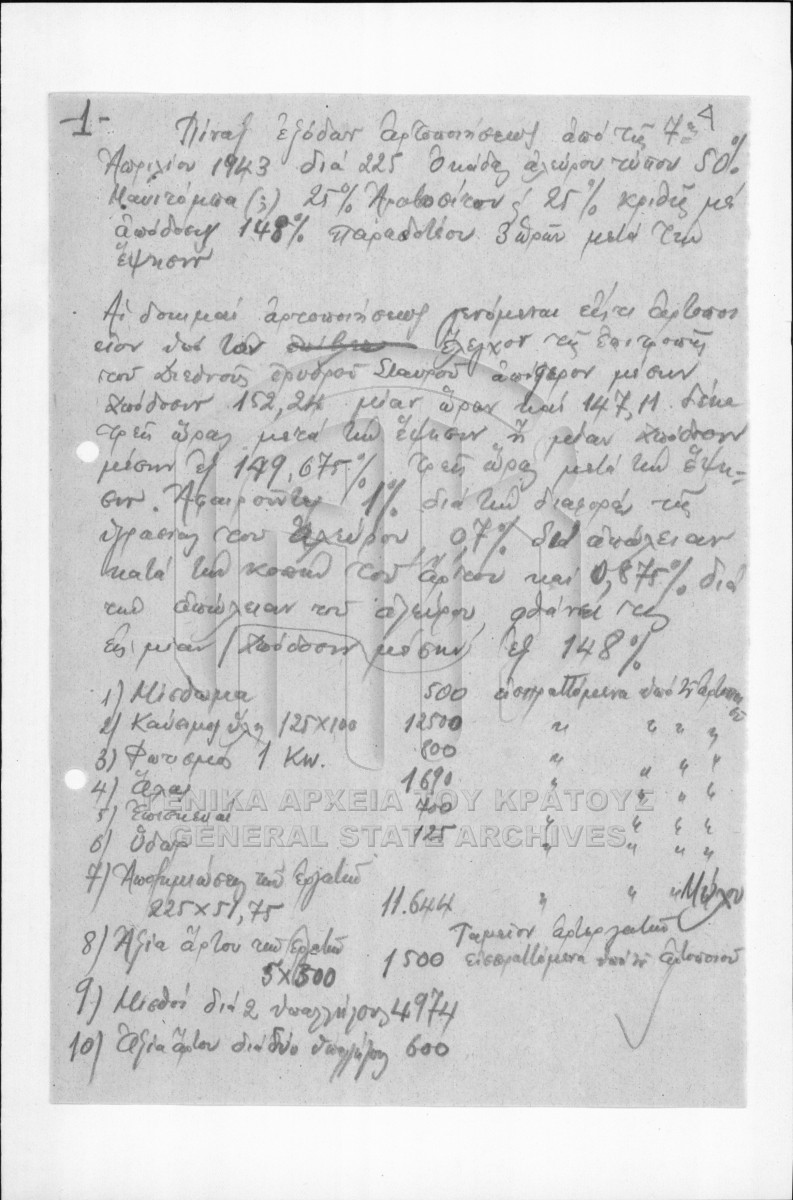 -1-
Πίναξ ἐξόδων ἀρτοποιήσεως ἀπό τῆς 7ης
Ἀπριλίου 1943 διά 225 ὀκάδες ἀλεύρου τύπου 50%
Μανιτόμπα (;) 25% Ἀραβοσίτου ϛ 25% κριθῆς μέ
ἀπόδοσιν 148% παραδοτέου 3 ὧραν μετά τήν
ἔψησιν
Αἱ δοκιμαί ἀρτοποιήσεως γενόμεναι εἰς τι ἀρτοποι
εῖον ὑπό τόν ἔλεγχον τῆς ἐπιτροπῆς
τοῦ Διεθνοῦς Ἐρυθροῦ Σταυροῦ ἀπέφερον μέσην
ἀπόδοσιν 152,24 μίαν ὥραν καί 147,11 δέκα
τρεῖς ὥρας μετά τήν ἔψησιν ἤ μίαν ἀπόδοσιν
μέσην ἐξ 149,675% τρεῖς ὥρας μετά τήν ἔψη-
σιν. Ἀφαιροῦντες 1% διά τήν διαφοράν τῆς
ὑγρασίας τοῦ ἀλεύρου, 0,7% διά ἀπώλειαν
κατά τήν κοπήν τοῦ ἄρτου καί 0,875% διά
τήν ἀπώλειαν τοῦ ἀλεύρου, φθάνει τις
εἰς μίαν ἀπόδοσιν μέσην ἐξ 148%
1) Μίσθωμα 500 εἰσπραττόμενα ὑπό τοῦ ἀρτοποιοῦ
2) Καύσιμος ὕλη 125X100 12500 " " " "
3) Φωτισμός 1 Kw. 800 " " " "
4) Ἅλας 1690 " " " "
5) Ἐπισκευαί 700 " " " "
6) Ὕδωρ 125 " " " "
7) Ἀποζημιώσεις τῶν ἐργατῶν
225X51,75 11.644 " " "
Ταμεῖον ἀρτεργατῶν
8) Ἀξία ἄρτου τῶν ἐργατῶν
5X300 1500 εἰσπραττόμενα ὑπό τοῦ ἀρτοποιοῦ
9) Μισθοί διά 2 ὑπαλλήλους 4974
10) Ἀξία ἄρτου διά δύο ὑπαλλήλους 600
ΓΕΝΙΚΑ ΑΡΧΕΙΑ ΤΟΥ ΚΡΑΤΟΥΣ
GENERAL STATE ARCHIVES